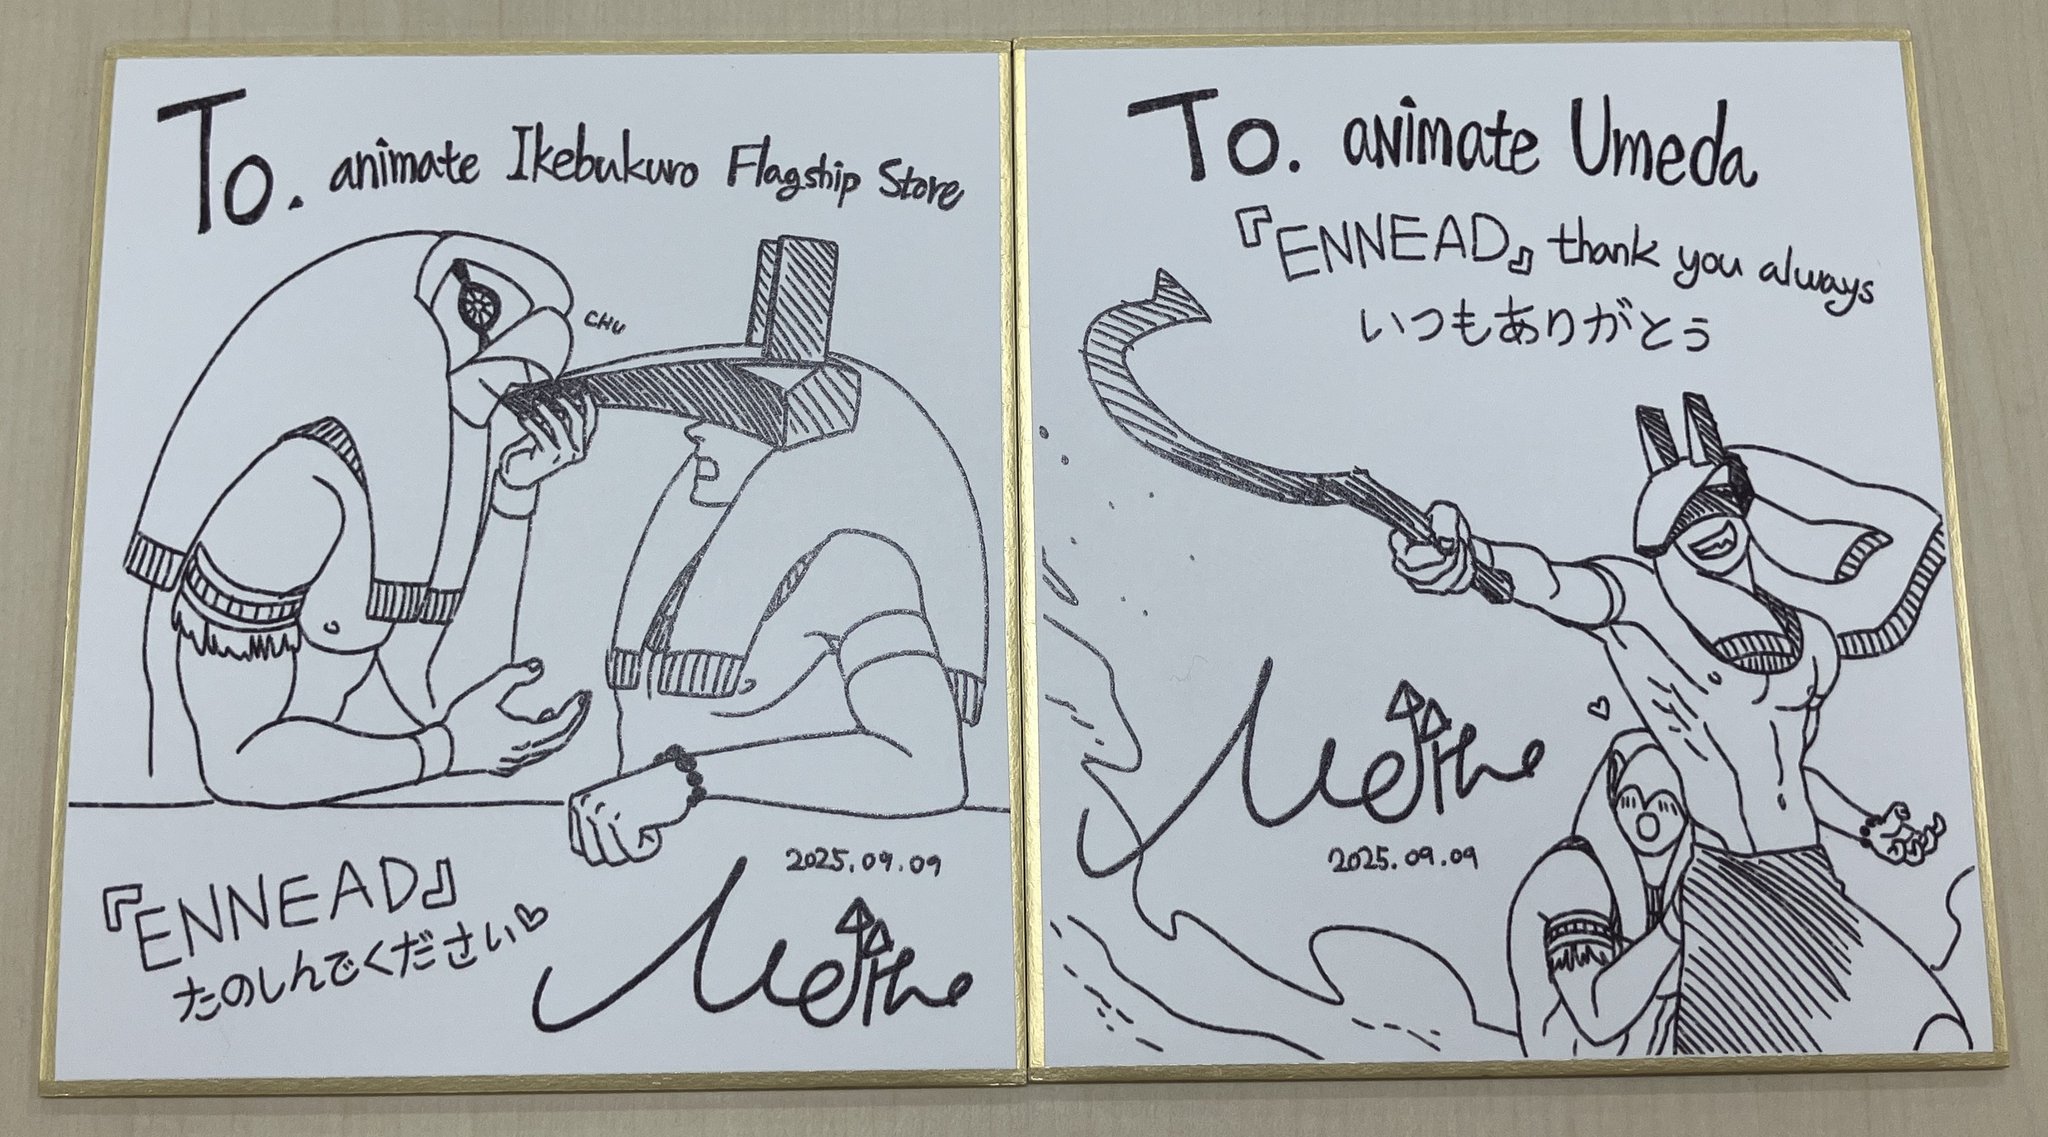 To. animate Ikebukuro Flagship Store
CHU
『ENNEAD』
たのしんでください♡
2025.09.09
Mojito
To. animate Umeda
『ENNEAD』 thank you always
いつもありがとう
2025.09.09